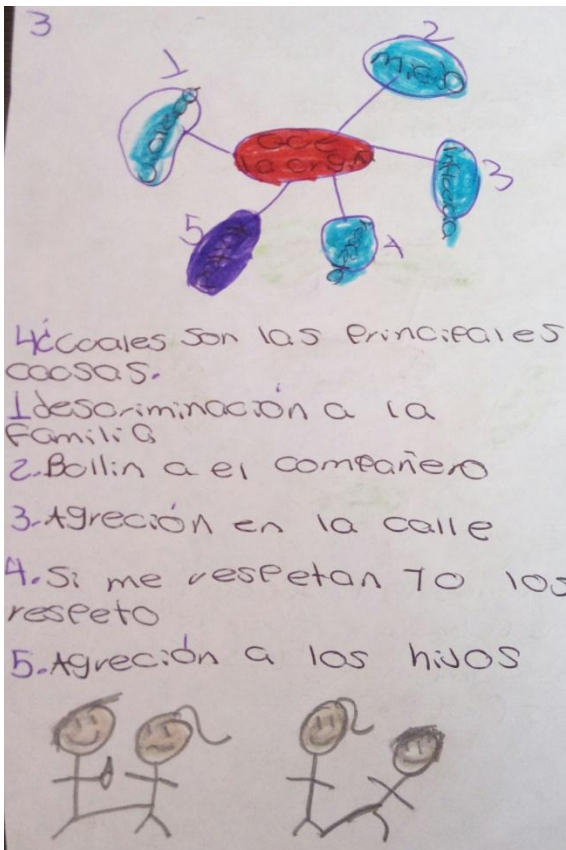 3
1
2
miedo
QUE
la origina
3
5
4
4¿Cuales son las principales
causas.
1 descriminación a la
familia
2. Bollin a el compañero
3. Agreción en la calle
4. Si me respetan yo los
respeto
5. Agreción a los hijos